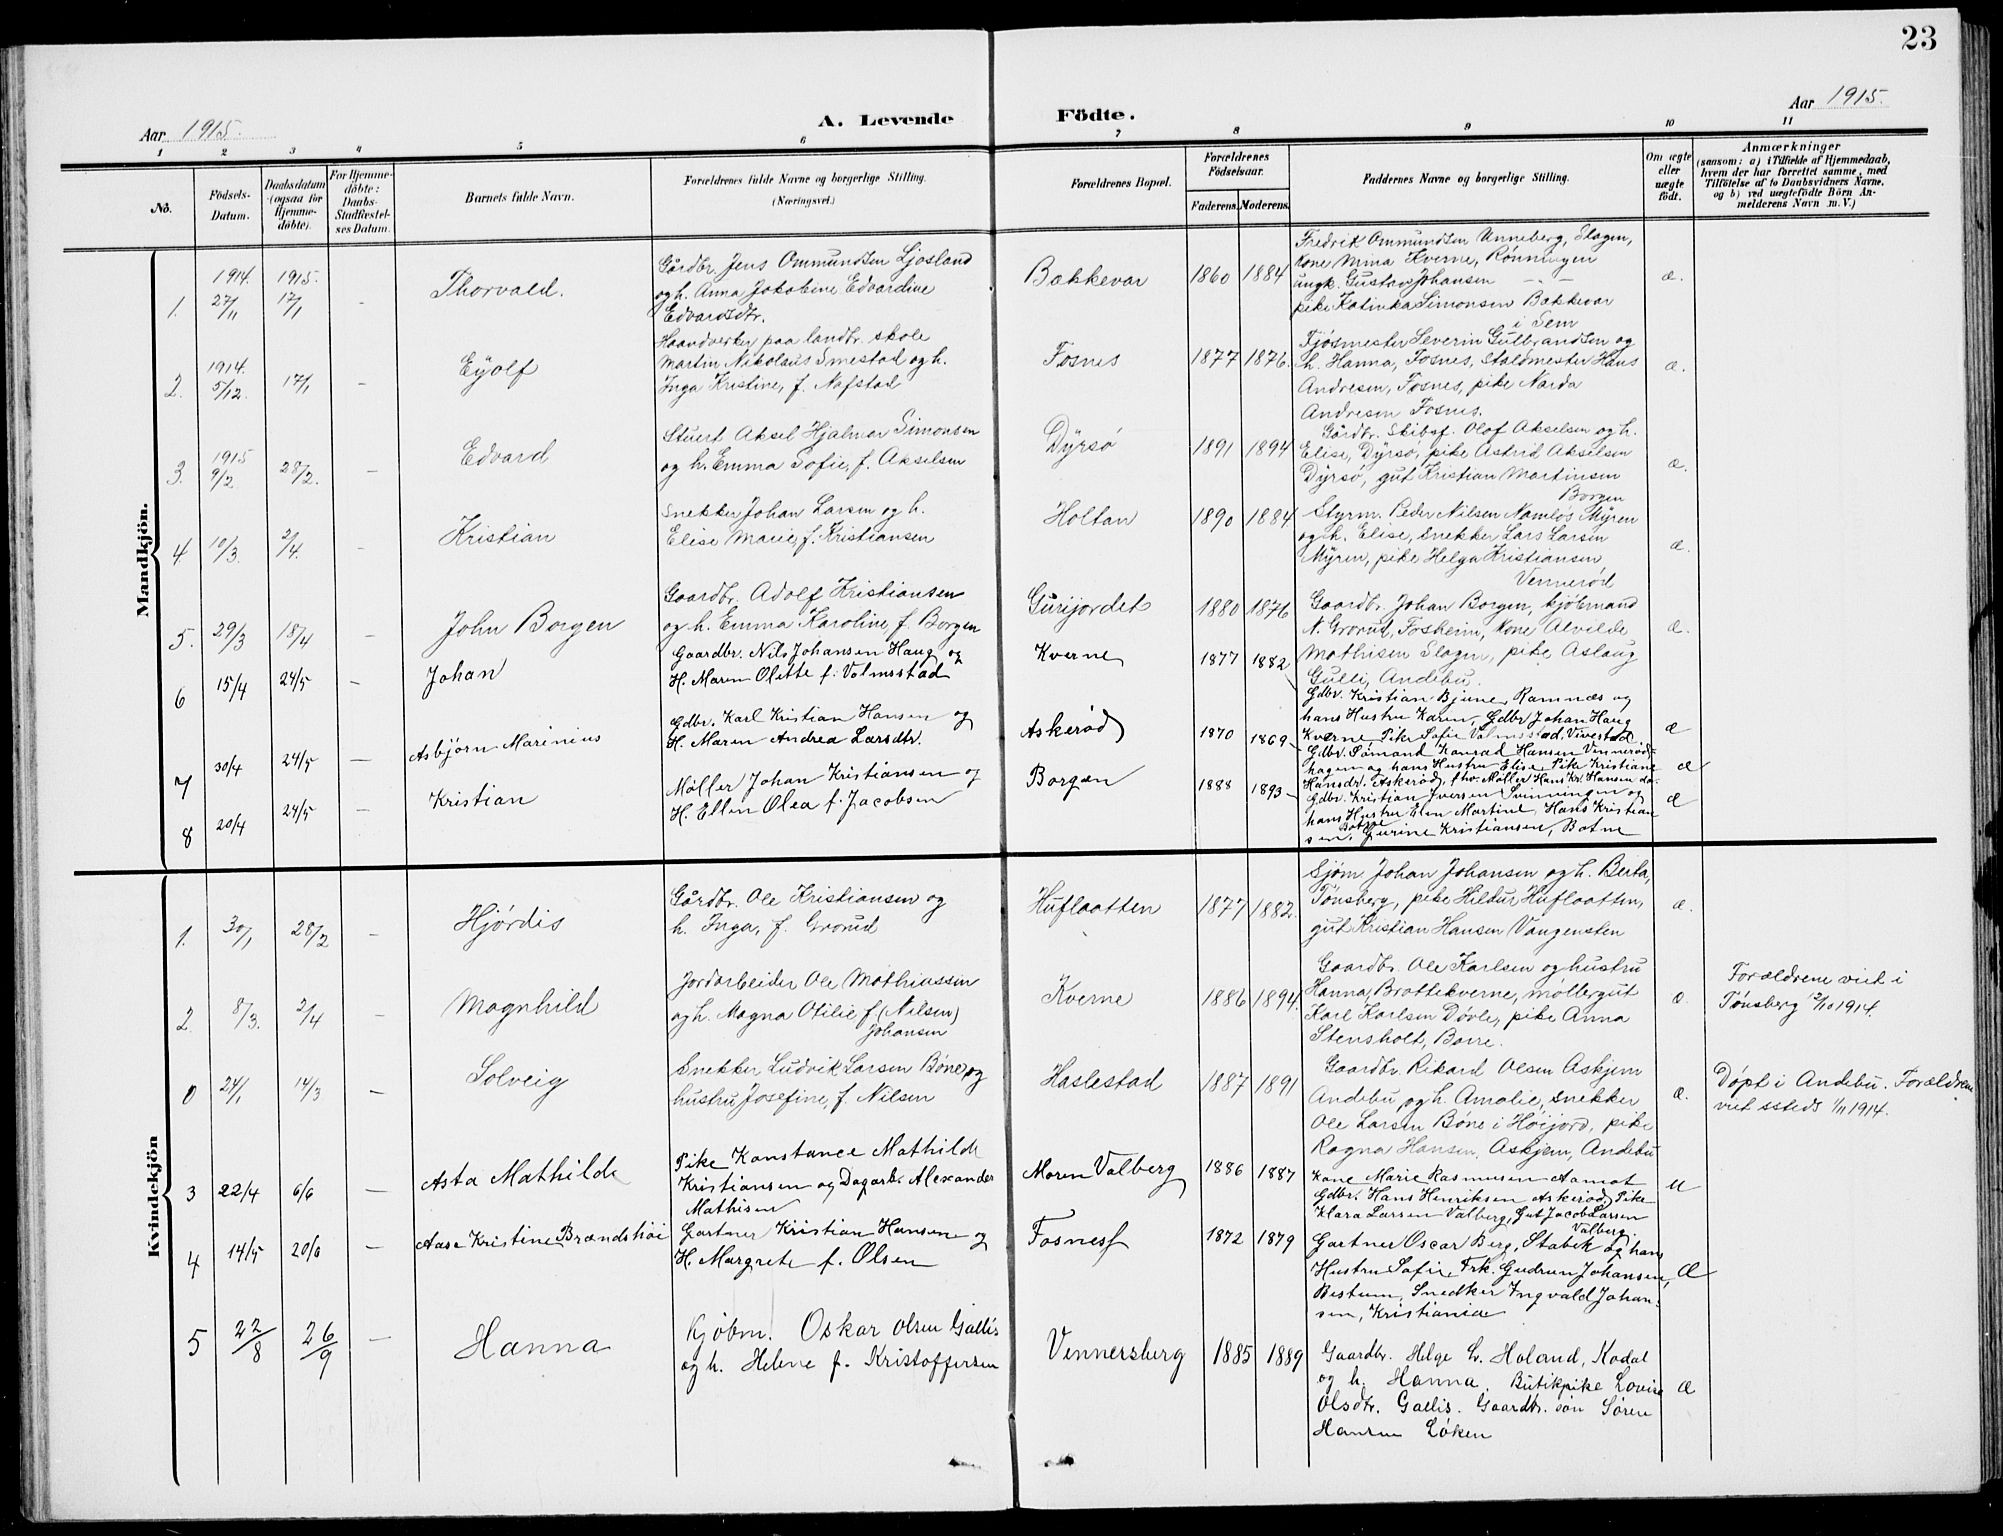 23
Aar 1915.
A. Levende Födte.
Aar 1915.
1 2 3 4 5 6 7 8 9 10 11
No.
Födsels-
Datum.
Daabsdatum
(ogsaa for
Hjemme-
döbte).
For Hjemme-
döbte:
Daabs-
Stadfæstel-
ses Datum.
Barnets fulde Navn.
Forældrenes fulde Navne og borgerlige Stilling.
(Næringsvei.)
Forældrenes Bopæl.
Forældrenes
Födselsaar.
Faderens. Moderens.
Faddernes Navne og borgerlige Stilling.
Om ægte
eller
uægte
født.
Anmærkninger
(saasom: a) i Tilfælde af Hjemmedaab,
hvem der har forrettet samme, med
Tilföielse af to Daabsvidners Navne,
og b) ved uægtefödte Börn An-
melderens Navn m. V.)
Mandkjön.
1. 1914. 27/11 1915. 17/1 - Thorvald.
Gårdbr. Jens Ommundsen Ljosland
og h. Anna Jakobine Edvardine
Edvardsdtr.
Bakkevar 1860 1884
Fredrik Ommundsen Unneberg, Slagen,
Kone Mina Kverne, Rønningen
ungk. Gustav Johansen — „ —
pike Katinka Simonsen Bakkevar
i Sem
æ.
2. 1914. 5/12. 17/1 - Eyolf
Haandverker paa landbr. skole
Martin Nikolaus Smestad og h.
Inga Kristine, f. Nafstad
Fosnes 1877 1876.
Fjøsmester Severin Gulbrandsen og
h. Hanna, Fosnes, Staldmester Hans
Andresen, Fosnes, pike Narda
Andresen Fosnes.
æ.
3. 1915 9/2 28/2. - Edvard
Stuert Aksel Hjalmar Simonsen
og h. Emma Sofie, f. Akselsen
Dyrsø 1891 1894
Gårdbr. Skibsf. Olof Akselsen og h.
Elise, Dyrsø, pike Astrid Akselsen
Dyrsø, gut Kristian Martinsen
Borgen
æ.
4. 10/3. 2/4. - Kristian
Snekker Johan Larsen og h.
Elise Marie, f. Kristiansen
Holtan 1890 1884
Styrm. Peder Nilsen Namløs Myren
og h. Elise, snekker Lars Larsen
Myren, pike Helga Kristiansen,
Vennerød
æ.
5. 29/3 18/4 - John Borgen
Gaardbr. Adolf Kristiansen
og h. Emma Karoline, f. Borgen
Gurijordet 1880 1876
Gaardbr. Johan Borgen, kjøbmand
N. Grorud, Fosheim, Kone Alvilde
Mathisen Slagen, pike Aslaug
Gulli, Andebu.
æ.
6 15/4 24/5 - Johan
Gaardbr. Nils Johansen Haug og
H. Maren Olitte f. Valmsstad
Kverne 1877 1882
Gdbr. Kristian Bjune, Ramnæs og
hans Hustru Karen, Gdbr. Johan Haug
Kverne Pike Sofie Valmsstad, Vivestad
æ
7 30/4 24/5 - Asbjørn Marinius
Gdbr. Karl Kristian Hansen og
H. Maren Andrea Larsdtr.
Askerød 1870 1869
Gdbr. Sømand Konrad Hansen Vennerød-
hagen og hans Hustru Elise Pike Kristiane
Hansdr. Askerød, fhv. Møller Hans Kr. Hansen do.
æ
8 20/4 24/5 - Kristian
Møller Johan Kristiansen og
H. Ellen Olea f. Jacobsen
Borgen 1888 1893
Gdbr. Kristian Iversen Svinningen og
hans Hustru Elen Martine, Hans Kristian
sen, Botne Kristiansen, Botne
æ
Kvindekjön
1. 30/1 28/2 - Hjørdis
Gårdbr. Ole Kristiansen og
h. Inga, f. Grorud
Huflaatten 1877 1882.
Sjøm Johan Johansen og h. Berta,
Tønsberg, pike Hildur Huflaatten,
gut Kristian Hansen Vangensten
æ.
2. 8/3. 2/4 - Magnhild
Jordarbeider Ole Mathiassen
og h. Magna Otilie f. (Nilsen)
Johansen
Kverne 1886 1894.
Gaardbr. Ole Karlsen og hustru
Hanna, Brattekverne, møllergut
Karl Karlsen Døvle, pike Anna
Stensholt, Borre.
o.
Forældrene viet i
Tønsberg 2/10 1914.
0 24/1 14/3 - Solveig
Snekker Ludvik Larsen Bøne, og
hustru Josefine, f. Nilsen
Haslestad 1887 1891
Gaardbr. Rikard Olsen Askjem
Andebu, og h. Amalie, snekker
Ole Larsen Bøne i Høijord, pike
Ragna Hansen, Askjem, Andebu
æ.
Døpt i Andebu. Forældrene
viet ssteds 1/11 1914.
3 22/4 6/6 - Asta Mathilde
Pike Konstance Mathilde
Kristiansen og Dagarb. Alexander
Mathisen
Moren Valberg 1886 1887
Kone Marie Rasmussen Aamot
Gdbr. Hans Henriksen Askerød, Pike
Klara Larsen Valberg, Gut Jacob Larsen
Valberg.
u
4 14/5 20/6 - Aase Kristine Brændshøi
Gartner Kristian Hansen og
H. Margrete f. Olsen
Fosnes 1872 1879
Gartner Oscar Berg, Stabæk og hans
Hustru Sofie. Frk. Gudrun Johansen,
Bestum, Snedker Ingvald Johan-
sen, Kristiania
æ
5 22/8 26/9 - Hanna
Kjøbm. Oskar Olsen Gallis
og h. Helene f. Kristoffersen
Vennersberg 1885 1889
Gaardbr. Helge L. Holand, Kodal
og h. Hanna. Butikpike Lovise
Olsdtr. Gallis. Gaardbr. søn Søren
Hansen Løken
æ